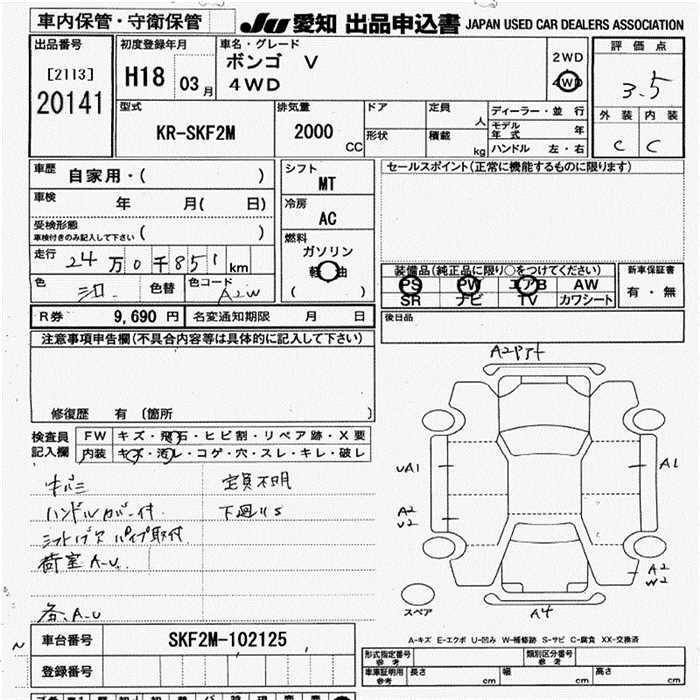 車内保管・守衛保管
JU 愛知 出品申込書 JAPAN USED CAR DEALERS ASSOCIATION
出品番号
[2113]
20141
初度登録年月
H18 03月
車名・グレード
ボンゴ V
4WD
2WD
4WD
評価点
3.5
外装 内装
C C
型式
KR-SKF2M
排気量
2000 CC
ドア
形状
定員 人
積載 kg
ディーラー・並行
モデル年式 年
ハンドル 左・右
車歴 自家用・( )
車検 年 月( 日)
受検形態
車検付きのみ記入して下さい ( )
走行 24万0千851km
色 シロ 色替 色コード A2W
シフト
MT
冷房
AC
燃料
ガソリン
軽油
( )
セールスポイント(正常に機能するものに限ります)
装備品(純正品に限り○をつけてください)
PS PW エアB AW
SR ナビ TV カワシート
新車保証書
有・無
R券 9,690円 名変通知期限 月 日
後日品
注意事項申告欄(不具合内容等は具体的に記入して下さい)
修復歴 有 (箇所 )
検査員記入欄
FW キズ・飛石・ヒビ割・リペア跡・X要
内装 キズ・汚レ・コゲ・穴・スレ・キレ・破レ
定員不明
ハンドルカバー付
下廻りS
パイプ取付
荷室A-U
各A-U
UA1
A1
A2
U2
A2
W2
スペア
A4
A-キズ E-エクボ U-凹み W-補修跡 S-サビ C-腐食 XX-交換済
車台番号 SKF2M-102125
登録番号
形式指定番号 参考
類別区分番号 参考
車庫証明用 参考 長さ cm 幅 cm 高さ cm